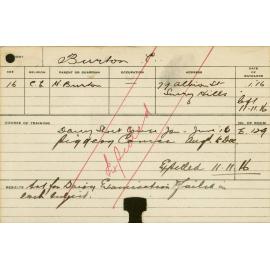 Burton
AGE RELIGION PARENT OR GUARDIAN OCCUPATION ADDRESS DATE
16 C.E. H. Burton — 79 Albion St 1.16
Surry Hills left
11-11-16
COURSE OF TRAINING
Dairy Short Course Jan - June 16 E. 129
Piggery Course Aug to Dec
Expelled
Expelled 11.11.16
RESULTS Sat for Dairy Examination failed in
each subject.